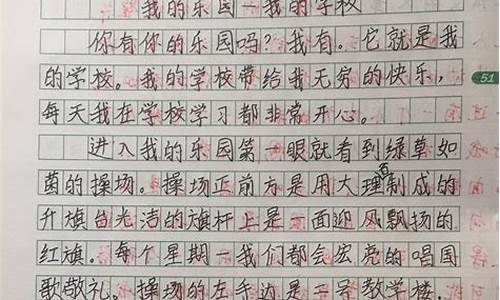 我的乐园—我的学校
你有你的乐园吗?我有。它就是我
的学校。我的学校带给我无穷的快乐,
每天我在学校学习都非常开心。
51
进入我的乐园第一眼就看到绿草如
茵的操场。操场正前方是用大理石制成的
升旗台光洁的旗杆上是一面迎风飘扬的
红旗。每个星期一我们都会宏亮的唱国
歌敬礼。操场的左手边是二号教学楼,